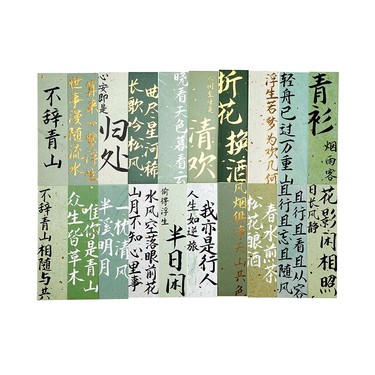 不辞青山
世事漫随流水
算来一梦浮生
心安即是
归处
长歌吟松风
曲尽星河稀
晓看天色暮看云
清欢
折花换酒
浮生若梦为欢几何
轻舟已过万重山
青衫
烟雨客
不辞青山相随与共
众生皆草木
唯你是青山
半溪明月
一枕清风
山月不知心里事
水风空落眼前花
偷得浮生
半日闲
人生如逆旅
我亦是行人
风烟俱净天山共色
松花酿酒
春水煎茶
且行且忘且随风
且行且看且从容
日长风静
花影闲相照